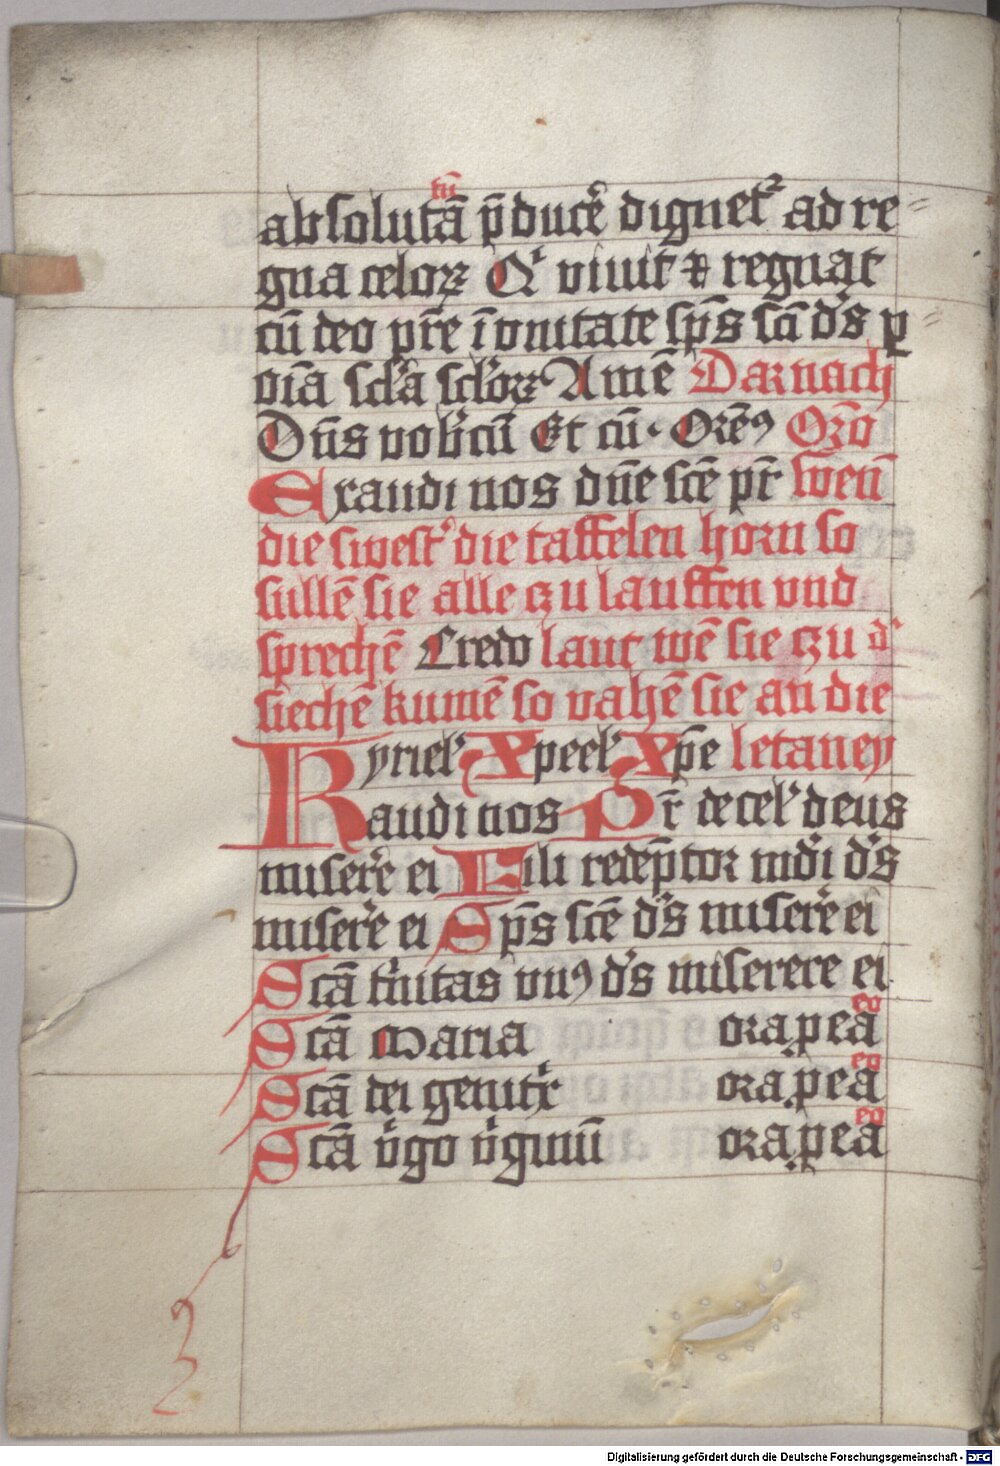 tū
absolutā ꝑducˀe dignetˀ ad re⸗
gna celoꝝ Qͥ viuit ⁊ regnat
cū deo pr̄e ī vnitate sp̄s sc̄i dˀs ꝑ⸗
oīa scl̓a scl̓oꝝ Amē Darnach
Dn̄s vob̓cū Et cū · Orēꝰ Orō
Exaudi nos dn̄e sc̄e pr̄ wen̄
die swestˀ die taffelen horn so
sullē sie alle czu lauffen vnd
sprechē Credo laut wē sie czu dˀ
siechē kumē so vahē sie an die
Kyriel̓ Xp̄eel̓ Xp̄e letaney
Xaudi nos Pr̄ de cel̓ deus
miserˀe ei Fili redēptor mdˀi dˀs
miserˀe ei Sp̄s sc̄e dˀs miserˀe ei
Sc̄a tˀnitas vnꝰ dˀs miserere ei
Sc̄a Maria ora ꝓ eā eo
Sc̄a dei genitͥx ora ꝓ eā eo
Sc̄a vͥgo vͥginū ora ꝓ eā eo
Digitalisierung gefördert durch die Deutsche Forschungsgemeinschaft - DFG